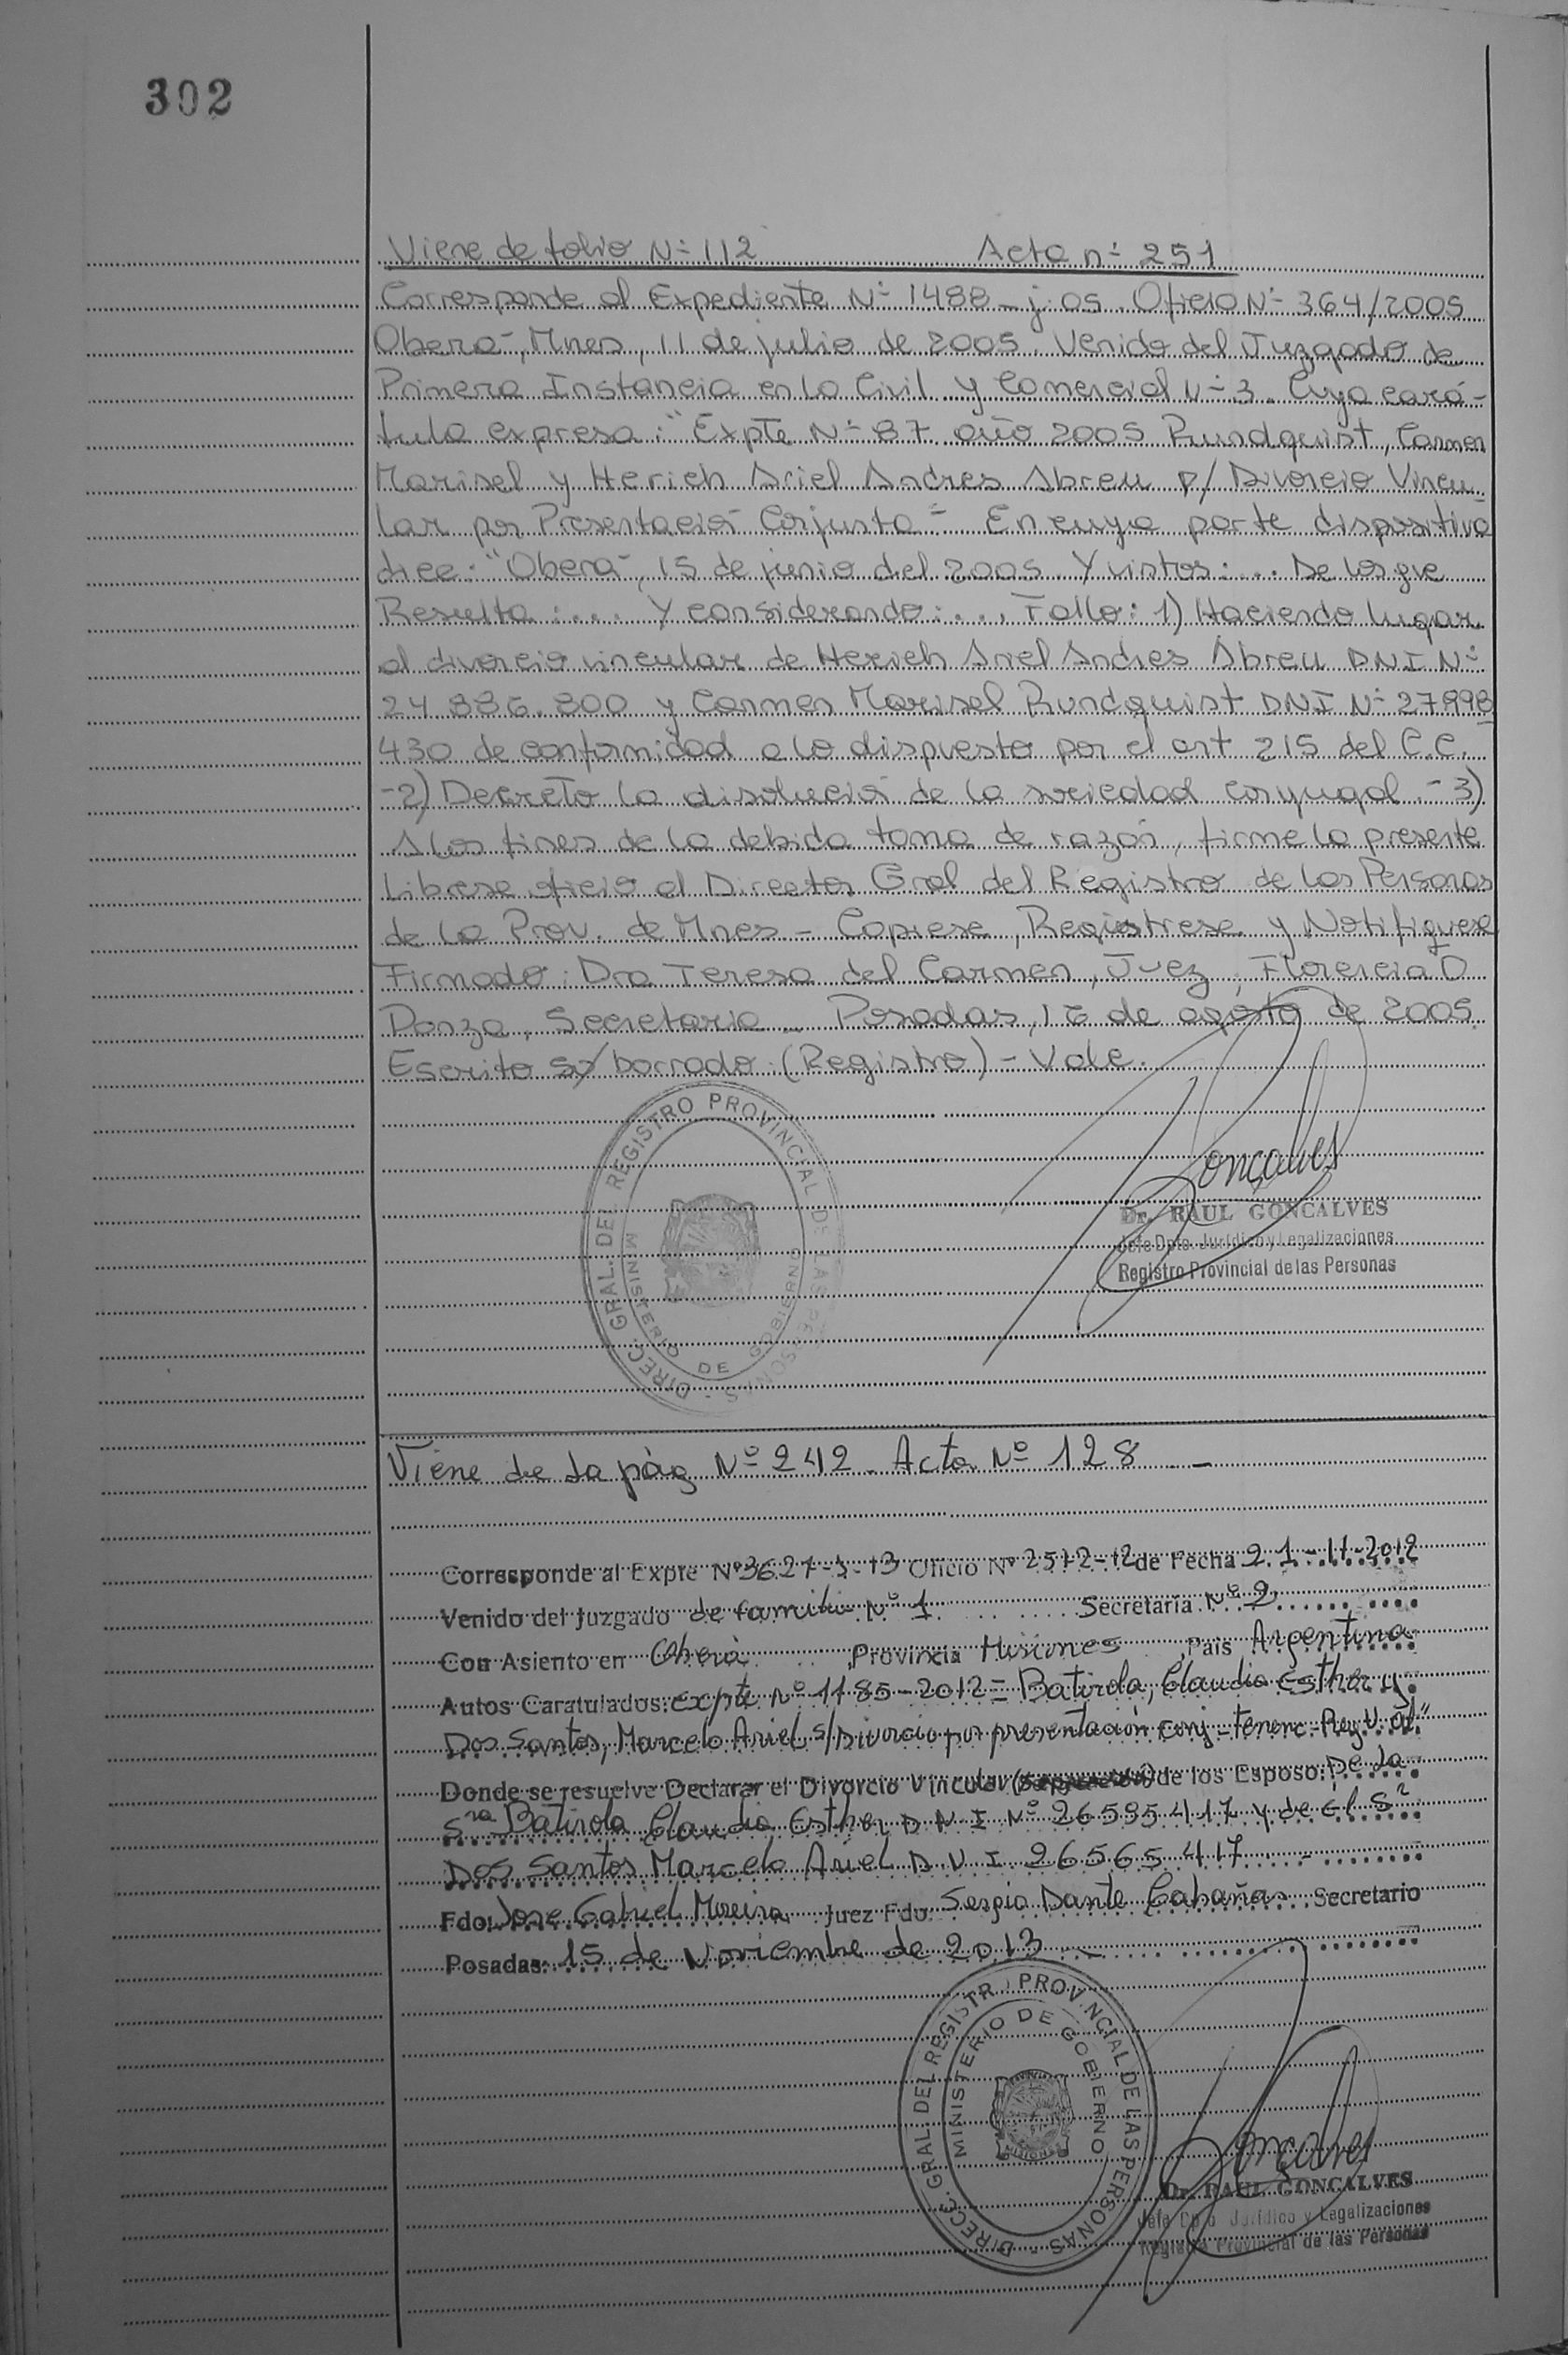 302
Viene de folio Nº 112 Acta nº 251
Corresponde al Expediente Nº 1488-j-05. Oficio Nº 364/2005
Oberá, Mnes, 11 de julio de 2005. Venido del Juzgado de
Primera Instancia en lo Civil y Comercial Nº 3. Cuya cará-
tula expresa: "Expte Nº 87 año 2005 Rundquist, Carmen
Marisel y Herich Ariel Andres Abreu p/ Divorcio Vincu-
lar por Presentació Conjunta" En cuya parte dispositiva
dice: "Oberá, 15 de junio del 2005. Y vistos: ... De los que
Resulta: ... Y considerando: ..., Fallo: 1) Haciendo lugar
al divorcio vincular de Herich Ariel Andres Abreu DNI Nº
24.886.800 y Carmen Marisel Rundquist DNI Nº 27.998
430 de conformidad a lo dispuesto por el art 215 del C.C.
-2) Decreto la disolució de la sociedad conyugal.- 3)
A los fines de la debida toma de razón, firme la presente
Librese oficio al Director Gral del Registro de las Personas
de la Prov. de Mnes - Copiese, Registrese y Notifiquese
Firmado: Dra Teresa del Carmen, Juez, Florencia D
Danza, Secretaria - Posadas, 16 de agosto de 2005.
Escrito s/ borrado: (Registro) - Vale.
DIREC. GRAL. DEL REGISTRO PROVINCIAL DE LAS PERSONAS
MINISTERIO DE GOBIERNO
Goncalves
Dr. RAUL GONCALVES
Jefe Dpto. Jurídico y Legalizaciones
Registro Provincial de las Personas
Viene de la pág Nº 242. Acta Nº 128 -
Corresponde al Expte Nº 3627-J-13 Oficio Nº 2512-12 de Fecha 21-11-2012
Venido del Juzgado de familia Nº 1 Secretaria Nº 2
Con Asiento en Oberá Provincia Misiones Pais Argentina
Autos Caratulados: expte Nº 1185-2012= Batirola, Claudia Esther y
Dos Santos, Marcelo Ariel s/Divorcio por presentación conj-Tenenc-Reg V. Al"
Donde se resuelve Declarar el Divorcio Vincular de los Esposo: De la
Sra Batirola Claudia Esther D N I Nº 26595417 y de él Sr
Dos Santos Marcelo Ariel D.N.I. 26565.417 -
Fdo. Jose Gabriel Moreira Juez Fdo. Sergio Dante Cabañas Secretario
Posadas: 15 de Noviembre de 2013 -
DIREC. GRAL. DEL REGISTRO PROVINCIAL DE LAS PERSONAS
MINISTERIO DE GOBIERNO
MISIONES
Goncalves
Dr. RAUL GONCALVES
Jefe Dpto Jurídico y Legalizaciones
Registro Provincial de las Personas